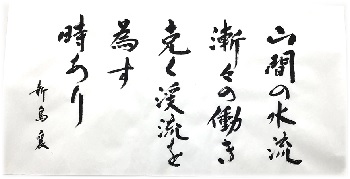 山間の水流
漸々の働き
克く渓流を
為す
時あり
新島襄